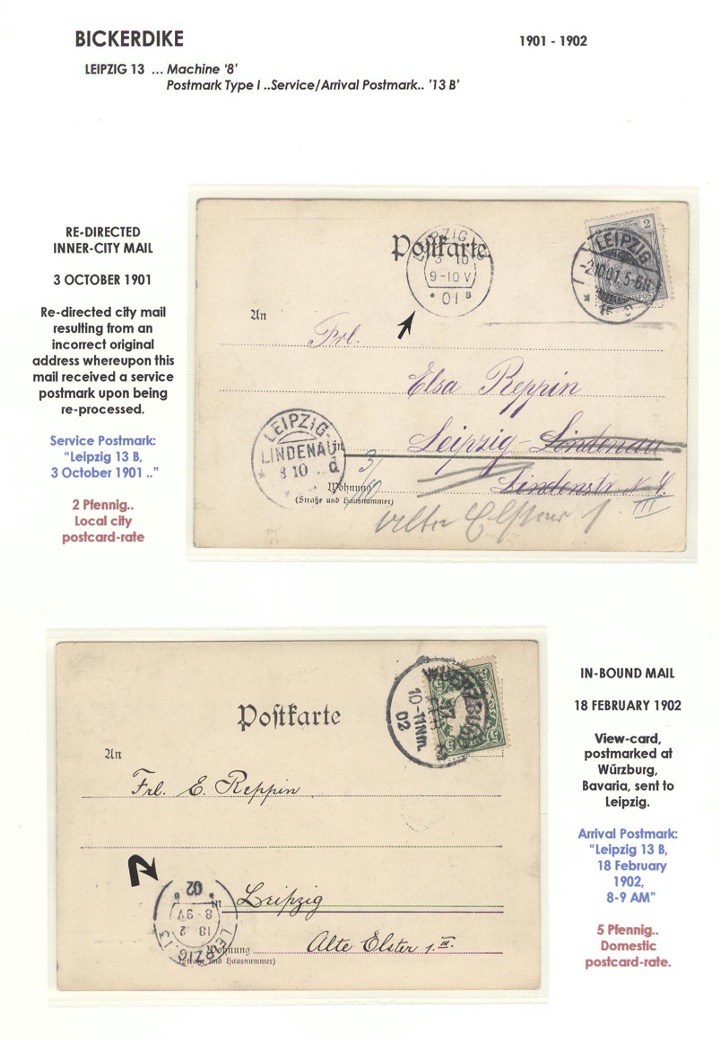 BICKERDIKE
1901 - 1902
LEIPZIG 13 ... Machine '8'
Postmark Type I ..Service/Arrival Postmark.. '13 B'
RE-DIRECTED
INNER-CITY MAIL
3 OCTOBER 1901
Re-directed city mail
resulting from an
incorrect original
address whereupon this
mail received a service
postmark upon being
re-processed.
Service Postmark:
"Leipzig 13 B,
3 October 1901 .."
2 Pfennig..
Local city
postcard-rate
Postkarte
LEIPZIG
3 10
9-10 V
* 01 B
2
LEIPZIG
-2.10.01.5-6N
An
Frl.
Elsa Reppin
Leipzig-Lindenau
in
LEIPZIG-
LINDENAU
3 10
d
3/10
Wohnung
(Straße und Hausnummer)
Lindenstr.
III
Alte Elster 1
Postkarte
WUERZBURG
17
10-11Nm.
02
An
Frl. E. Reppin
in Leipzig
02
8-9V
18 2
LEIPZIG 13
Wohnung
(Straße und Hausnummer)
Alte Elster 1. III.
IN-BOUND MAIL
18 FEBRUARY 1902
View-card,
postmarked at
Würzburg,
Bavaria, sent to
Leipzig.
Arrival Postmark:
"Leipzig 13 B,
18 February
1902,
8-9 AM"
5 Pfennig..
Domestic
postcard-rate.